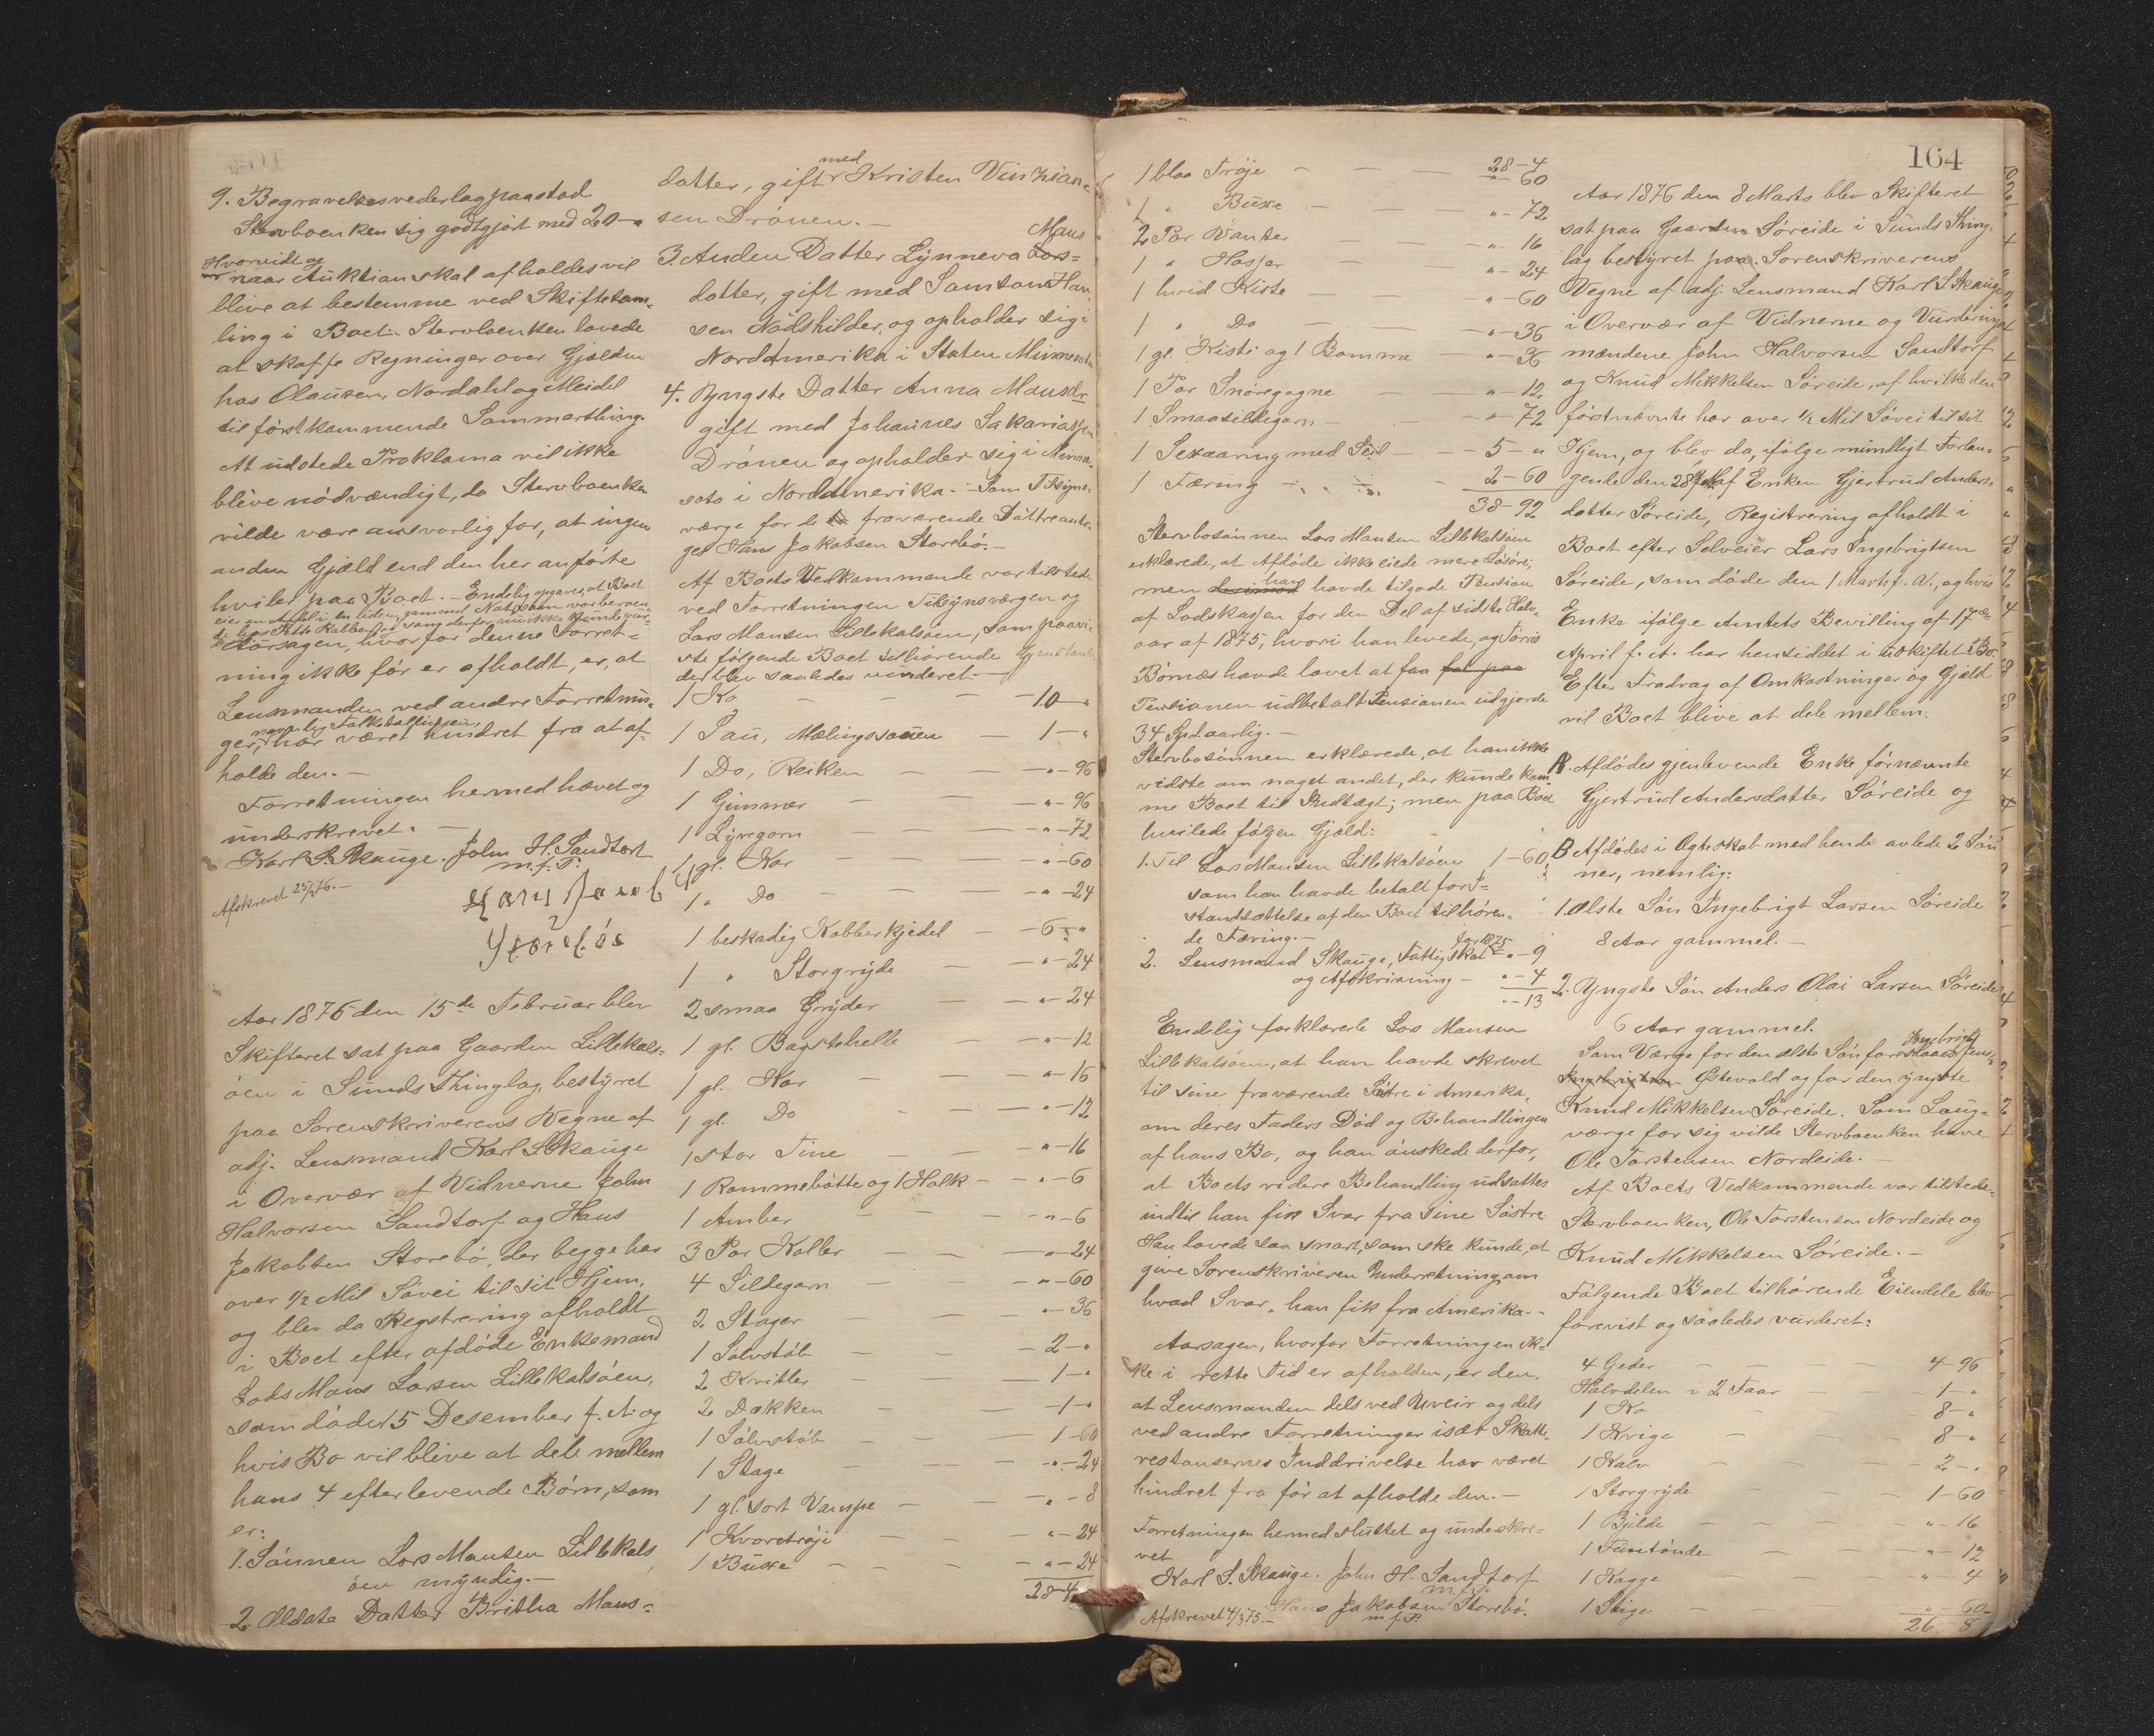 9. Begravelsesvederlag paastod
Stervboenken sig godtgjort med 20-"
Hvorvidt og
naar Auktion skal afholdes vil
blive at bestemme ved Skiftesam-
ling i Boet. Stervboenken lovede
at skaffe Regninger over Gjælden
hos Olausen, Nordahl og Meidel
til førstkommende Sommerthing.
At udstede Proklama vil ikke
blive nødvendigt, da Stervboenken
vilde være ansvarlig for, at ingen
anden Gjæld end den her anførte
hviler paa Boet. - Endelig opgaves, at Boet
eier en Andel i en liden gammel Not, som var beroen-
de hos Peter Rabben og som derfor nu ikke kunde vur-
Aarsagen, hvorfor denne Forret-
ning ikke før er afholdt, er, at
Lensmanden ved andre Forretnin-
navnlig Folketællingen,
ger, har været hindret fra at af-
holde den. -
Forretningen hermed hævet og
underskrevet. -
Karl S. Skauge. John H. Sandtorf
m. f. P.
Afskrevet 25/2 76. -
Aar 1876 den 15de Februar blev
Skifteret sat paa Gaarden Lillekals-
øen i Sunds Thinglag, bestyret
paa Sorenskriverens Vegne af
adj. Lensmand Karl S Skauge
i Overvær af Vidnerne John
Halvorsen Sandtorf og Hans
Jakobsen Storebø, der begge har
over 1/2 Mil Søvei til sit Hjem,
og blev da Regstrering afholdt
i Boet efter afdøde Enkemand
Lods Mons Larsen Lillekalsøen,
som døde 15 Desember f. A. og
hvis Bo vil blive at dele mellem
hans 4 efterlevende Børn, som
er:
1. Sønnen Lars Monsen Lillekals
øen myndig. -
2. Ældste Datter Britha Mons-
datter, gift med Kristen Vinzian-
sen Drønen. -
Mons
3. Anden Datter Lynneva Lars-
datter, gift med Samson Han-
sen Nødshilder, og opholder sig i
Nordamerika i Staten Minnesota
4. Yngste Datter Anna Monsdr
gift med Johannes Sakariassen
Drønen og opholder sig i Minne-
sota i Nordamerika. - Som Tilsyns-
værge for de fraværende Døttre anta-
ges Hans Jakobsen Storebø. -
Af Boets Vedkommende var tilstede
ved Forretningen Tilsynsværgen og
Lars Monsen Lillekalsøen, som paavi-
ste følgende Boet tilhørende Gjenstande
der blev saaledes vurderet. -
1 Ko - 10 - "
1 Sau, Mælingssauen - 1 - "
1 Do, Reiken - " - 96
1 Gimmer - " - 96
1 Lynegarn - " - 72
1 gl. Kar - " - 60
1 " Do - " - 24
1 beskadig Kobberkjedel - 6 - "
1 " Storgryde - " - 24
2 smaa Gryder - " - 24
1 gl. Bagstehelle - " - 12
1 gl. Kar - " - 16
1 gl. Do - " - 12
1 stor Tine - " - 16
1 Rommebøtte og 1 Holk - " - 6
1 Amber - " - 6
3 Par Koller - " - 24
4 Sildegarn - " - 60
2 Stager - " - 36
1 Sølvstøb - 2 - "
2 Kvitler - 1 - "
2 Dækken - 1 - "
1 Sølvstøb - 1 - 60
1 Stage - " - 24
1 gl. sort Vampe - " - 8
1 Kvoretrøje - " - 24
1 Buxe - " - 24
28 - 4
28 - 4
1 blaa Trøje - " - 60
1 " Buxe - " - 72
2 Par Vanter - " - 16
1 " Hosser - " - 24
1 hvid Kiste - " - 60
1 " Do - " - 36
1 gl. Kiste og 1 Bomme - " - 36
1 Par Snøregogne - " - 12
1 Smaasildegarn - " - 72
1 Sexaaring med Seil - 5 - "
1 Færing - 2 - 60
38 - 92
Stervbosønnen Lars Monsen Lillekalsøen
erklærede, at Afdøde ikke eiede mere Løsøre,
men han havde tilgode Pension
af Lodskassen for den Del af sidste Halv-
aar af 1875, hvori han levede, og Tørris
Børnæs havde lovet at faa
Pensionen udbetalt. Pensionen udgjorde
34 Spd. aarlig. -
Stervbosønnen erklærede, at han ikke
vidste om noget andet, der kunde kom-
me Boet til Indtægt; men paa Boet
hvilede følgen Gjæld:
1. Til Lars Monsen Lillekalsøen 1 - 60,
som han havde betalt for I-
standsættelse af den Boet tilhøren-
de Færing. -
2. Lensmand Skauge, Fattigskat for 1875 " - 9
og Afskrivning - " - 4
" - 13
Endelig forklarede Lars Monsen
Lillekalsøen, at han havde skrevet
til sine fraværende Søstre i Amerika,
om deres Faders Død og Behandlingen
af hans Bo, og han ønskede derfor,
at Boets videre Behandling udsattes
indtil han fik Svar fra sine Søstre
Han lovede saa snart, som ske kunde, at
give Sorenskriveren Underretning om
hvad Svar, han fik fra Amerika. -
Aarsagen, hvorfor Forretningen ik-
ke i rette Tid er afholden, er den,
at Lensmanden dels ved Uveir og dels
ved andre Forretninger især Skatte-
restansernes Inddrivelse har været
hindret fra før at afholde den. -
Forretningen hermed sluttet og underskre-
vet
Karl S. Skauge. John H. Sandtorf
m. f. P.
Hans Jakobsen Storebø.
m. f. P.
Afskrevet 4/3 75. -
164
Aar 1876 den 8 Marts blev Skifteret
sat paa Gaarden Søreide i Sunds Thing-
lag bestyret paa Sorenskriverens
Vegne af adj. Lensmand Karl S Skauge
i Overvær af Vidnerne og Vurderings
mændene John Halvorsen Sandtorf
og Knud Mikkelsen Søreide, af hvilke den
førstnævnte har over 1/2 Mil Søvei til sit
Hjem, og blev da, ifølge mundligt Forlan-
gende den 28 Feb. af Enken Gjertrud Anders-
datter Søreide, Registrering afholdt i
Boet efter Selveier Lars Ingebrigtsen
Søreide, som døde den 1 Marts f. A., og hvis
Enke ifølge Amtets Bevilling af 17de
April f. A. har hensiddet i uskiftet Bo.
Efter Fradrag af Omkostninger og Gjæld
vil Boet blive at dele mellem:
A. Afdødes gjenlevende Enke førnævnte
Gjertrud Andersdatter Søreide og
B Afdødes i Ægteskab med hende avlede 2 Søn
ner, nemlig:
1. Ælste Søn Ingebrigt Larsen Søreide
8 Aar gammel. -
2. Yngste Søn Anders Olai Larsen Søreide
6 Aar gammel.
Ingebrigt
Som Værge for den ælste Søn foreslaaes Jens-
Østevold og for den yngste
Knud Mikkelsen Søreide. Som Laug-
værge for sig vilde Stervboenken have
Ole Torstensen Nordeide. -
Af Boets Vedkommende var tilstede
Stervboenken, Ole Torstensen Nordeide og
Knud Mikkelsen Søreide. -
Følgende Boet tilhørende Eiendele blev
forevist og saaledes vurderet:
4 Geder - 4 - 96
Halvdelen i 2 Faar - 1 - "
1 Ko - 8 - "
1 Kvige - 8 - "
1 Kalv - 2 - "
1 Storgryde - 1 - 60
1 Bjelde - " - 16
1 Tøntønde - " - 12
1 Kagge - " - 4
1 Stige - " - 60
26 - 8